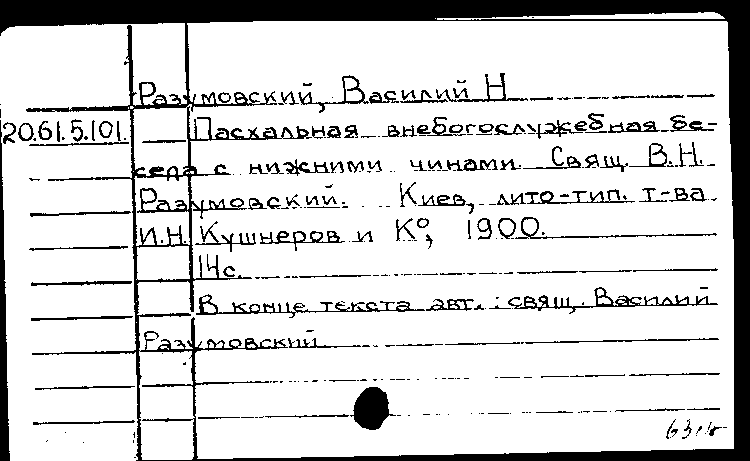 Разумовский, Василий Н
20.61.5.101. Пасхальная внебогослужебная бе-
седа с нижними чинами. Свящ. В.Н.
Разумовский. Киев, лито-тип. т-ва
И.Н. Кушнеров и К°, 1900.
14с.
В конце текста авт.: свящ. Василий
Разумовский